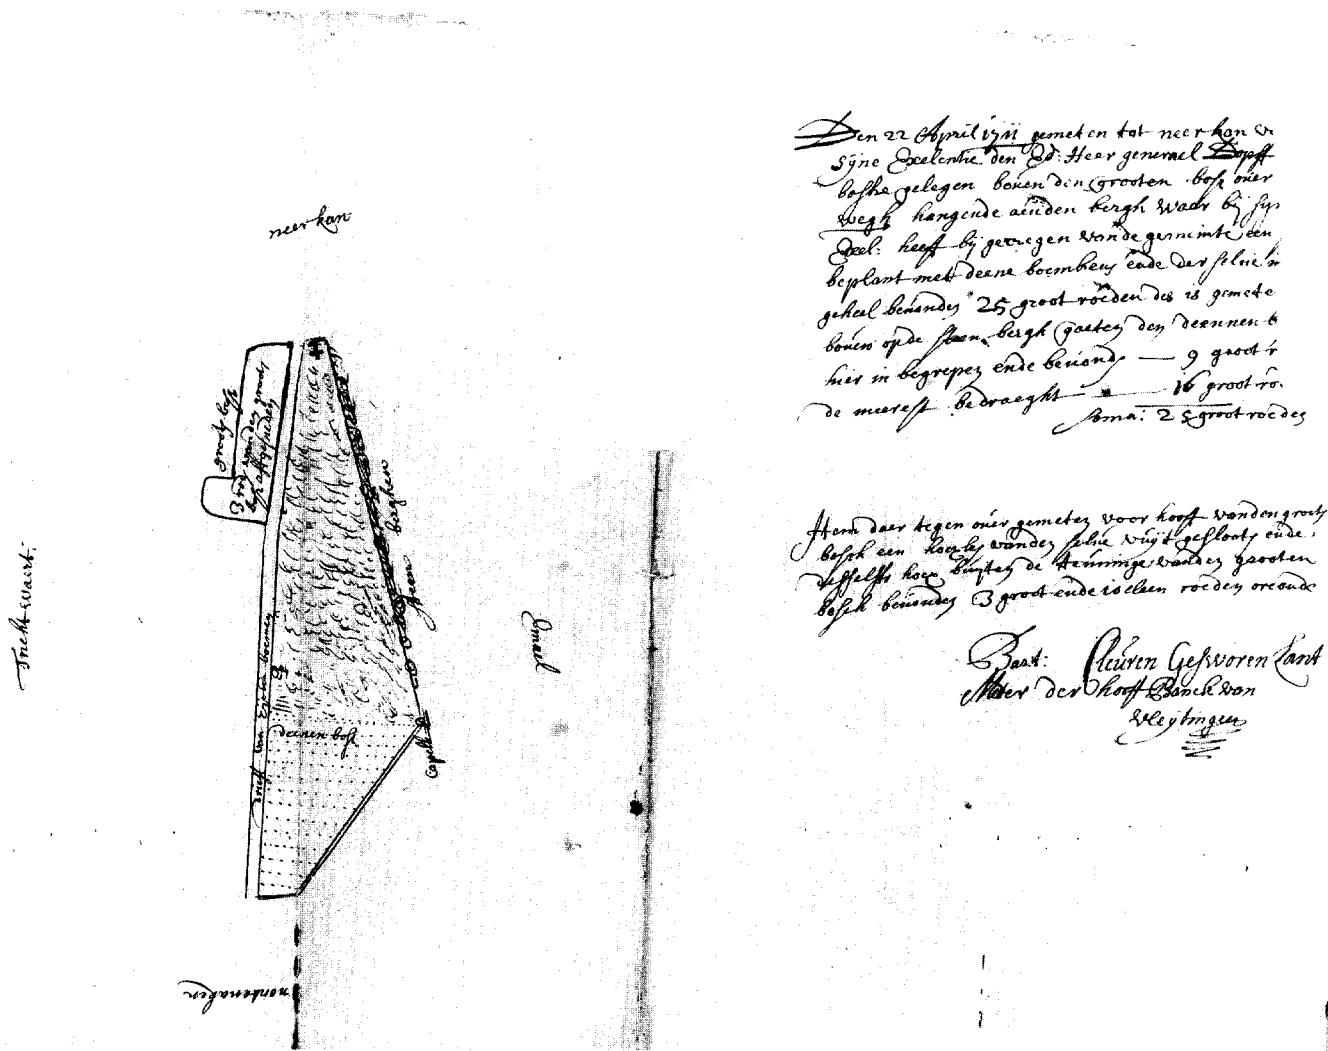 neerkan
grooten bosch
3 roeden vanden grooten
bosch affgesneden
Tricht waert:
steen berghen
Emael
dreeff van eycke boomen
deenen bosch
Capelle
nontenaken
Den 22 April 1711 gemeten tot neerkan v
Sÿne Exelentie den Ed: Heer generael Dopff
boske gelegen boven den grooten bosk over
wegh hangende aenden bergh waer bÿ sÿn
Exel: heeft bÿ gecregen vande gemeinte een
beplant met deene boemkens ende der selve in
geheel bevonden 25 groot roeden des is gemete
boven opde steen bergh gaeten den deennen b
hier in begrepen ende bevonden — 9 groot r
de meerest bedraeght — 16 groot ro.
Soma: 25 groot roeden
Item daer tegen over gemeten voor hooft vanden grooten
bosch een hoexken vanden selve vuÿt geslooten ende
desselffs hoex buÿten de Heuninge vanden grooten
bosch bevonden 3 groot ende cleen roeden oirconde
Bart: Cleuren Gesworen Lant
Meter der hooft Banck van
Vleytingen